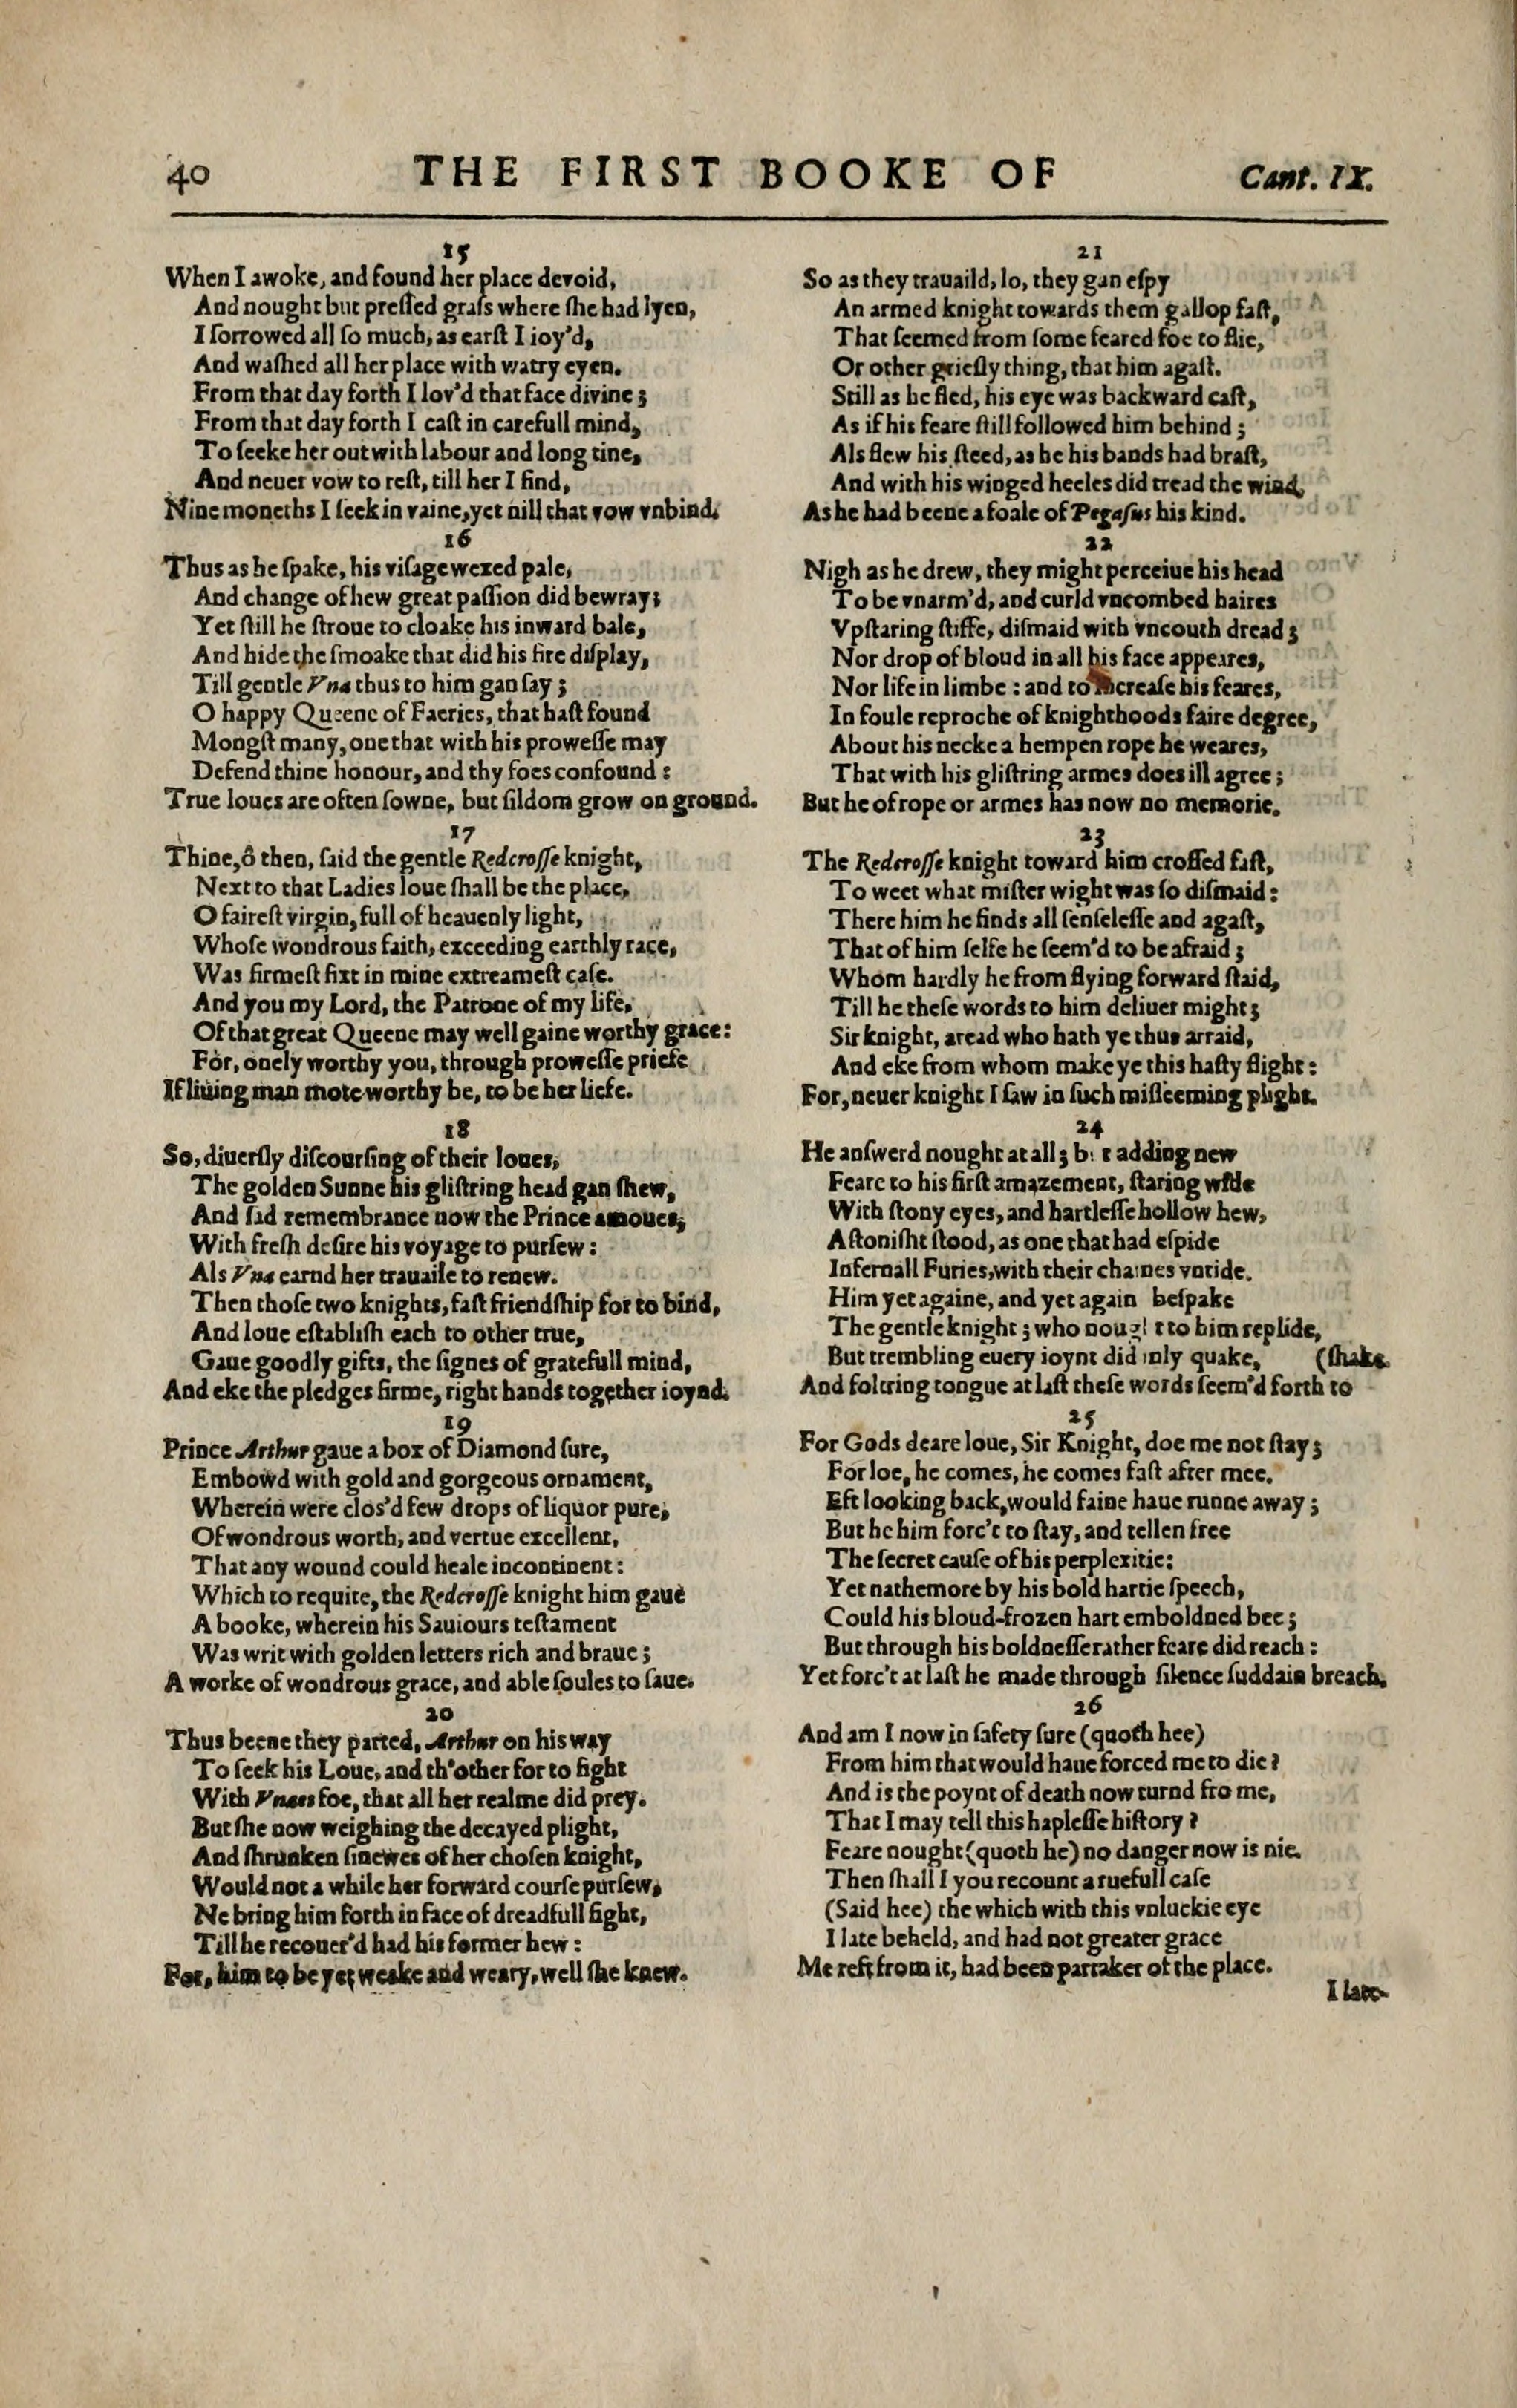 40 THE FIRST BOOKE OF Cant. IX.
15
When I awoke, and found her place devoid,
And nought but preſſed graſs where ſhe had lyen,
I ſorrowed all ſo much, as earſt I ioy'd,
And waſhed all her place with watry eyen.
From that day forth I lov'd that face divine;
From that day forth I caſt in carefull mind,
To ſeeke her out with labour and long tine,
And neuer vow to reſt, till her I find,
Nine moneths I ſeek in vaine, yet nill that vow vnbind.
16
Thus as he ſpake, his viſage wexed pale,
And change of hew great paſſion did bewray;
Yet ſtill he ſtroue to cloake his inward bale,
And hide the ſmoake that did his fire diſplay,
Till gentle Vna thus to him gan ſay;
O happy Queene of Faeries, that haſt found
Mongſt many, one that with his proweſſe may
Defend thine honour, and thy foes confound:
True loues are often ſowne, but ſildom grow on ground.
17
Thine, ô then, ſaid the gentle Redcroſſe knight,
Next to that Ladies loue ſhall be the place,
O faireſt virgin, full of heauenly light,
Whoſe wondrous faith, exceeding earthly race,
Was firmeſt fixt in mine extreameſt caſe.
And you my Lord, the Patrone of my life,
Of that great Queene may well gaine worthy grace:
For, onely worthy you, through proweſſe priefe
If liuing man mote worthy be, to be her liefe.
18
So, diuerſly diſcourſing of their loues,
The golden Sunne his gliſtring head gan ſhew,
And ſad remembrance now the Prince amoues,
With freſh deſire his voyage to purſew:
Als Vna earnd her trauaile to renew.
Then thoſe two knights, faſt friendſhip for to bind,
And loue eſtabliſh each to other true,
Gaue goodly gifts, the ſignes of gratefull mind,
And eke the pledges firme, right hands together ioynd.
19
Prince Arthur gaue a box of Diamond ſure,
Embowd with gold and gorgeous ornament,
Wherein were clos'd few drops of liquor pure,
Of wondrous worth, and vertue excellent,
That any wound could heale incontinent:
Which to requite, the Redcroſſe knight him gaue
A booke, wherein his Sauiours teſtament
Was writ with golden letters rich and braue;
A worke of wondrous grace, and able ſoules to ſaue.
20
Thus beene they parted, Arthur on his way
To ſeek his Loue, and th'other for to fight
With Vnaes foe, that all her realme did prey.
But ſhe now weighing the decayed plight,
And ſhrunken ſinewes of her choſen knight,
Would not a while her forward courſe purſew,
Ne bring him forth in face of dreadfull fight,
Till he recouer'd had his former hew:
For, him to be yet weake and weary, well ſhe knew.
21
So as they trauaild, lo, they gan eſpy
An armed knight towards them gallop faſt,
That ſeemed from ſome feared foe to flie,
Or other grieſly thing, that him agaſt.
Still as he fled, his eye was backward caſt,
As if his feare ſtill followed him behind;
Als flew his ſteed, as he his bands had braſt,
And with his winged heeles did tread the wind,
As he had beene a foale of Pegaſus his kind.
22
Nigh as he drew, they might perceiue his head
To be vnarm'd, and curld vncombed haires
Vpſtaring ſtiffe, diſmaid with vncouth dread;
Nor drop of bloud in all his face appeares,
Nor life in limbe: and to increaſe his feares,
In foule reproche of knighthoods faire degree,
About his necke a hempen rope he weares,
That with his gliſtring armes does ill agree;
But he of rope or armes has now no memorie.
23
The Redcroſſe knight toward him croſſed faſt,
To weet what miſter wight was ſo diſmaid:
There him he finds all ſenſeleſſe and agaſt,
That of him ſelfe he ſeem'd to be afraid;
Whom hardly he from flying forward ſtaid,
Till he theſe words to him deliuer might;
Sir knight, aread who hath ye thus arraid,
And eke from whom make ye this haſty flight:
For, neuer knight I ſaw in ſuch miſſeeming plight.
24
He anſwerd nought at all; but adding new
Feare to his firſt amazement, ſtaring wide
With ſtony eyes, and hartleſſe hollow hew,
Aſtoniſht ſtood, as one that had eſpide
Infernall Furies, with their chaines vntide.
Him yet againe, and yet again beſpake
The gentle knight; who nought to him replide,
But trembling euery ioynt did inly quake, (ſhake.
And foltring tongue at laſt theſe words ſeem'd forth to
25
For Gods deare loue, Sir Knight, doe me not ſtay;
For loe, he comes, he comes faſt after mee.
Eft looking back, would faine haue runne away;
But he him forc't to ſtay, and tellen free
The ſecret cauſe of his perplexitie:
Yet nathemore by his bold hartie ſpeech,
Could his bloud-frozen hart emboldned bee;
But through his boldneſſe rather feare did reach:
Yet forc't at laſt he made through ſilence ſuddain breach.
26
And am I now in ſafety ſure (quoth hee)
From him that would haue forced me to die?
And is the poynt of death now turnd fro me,
That I may tell this hapleſſe hiſtory?
Feare nought (quoth he) no danger now is nie.
Then ſhall I you recount a ruefull caſe
(Said hee) the which with this vnluckie eye
I late beheld, and had not greater grace
Me reft from it, had been partaker of the place.
I late-